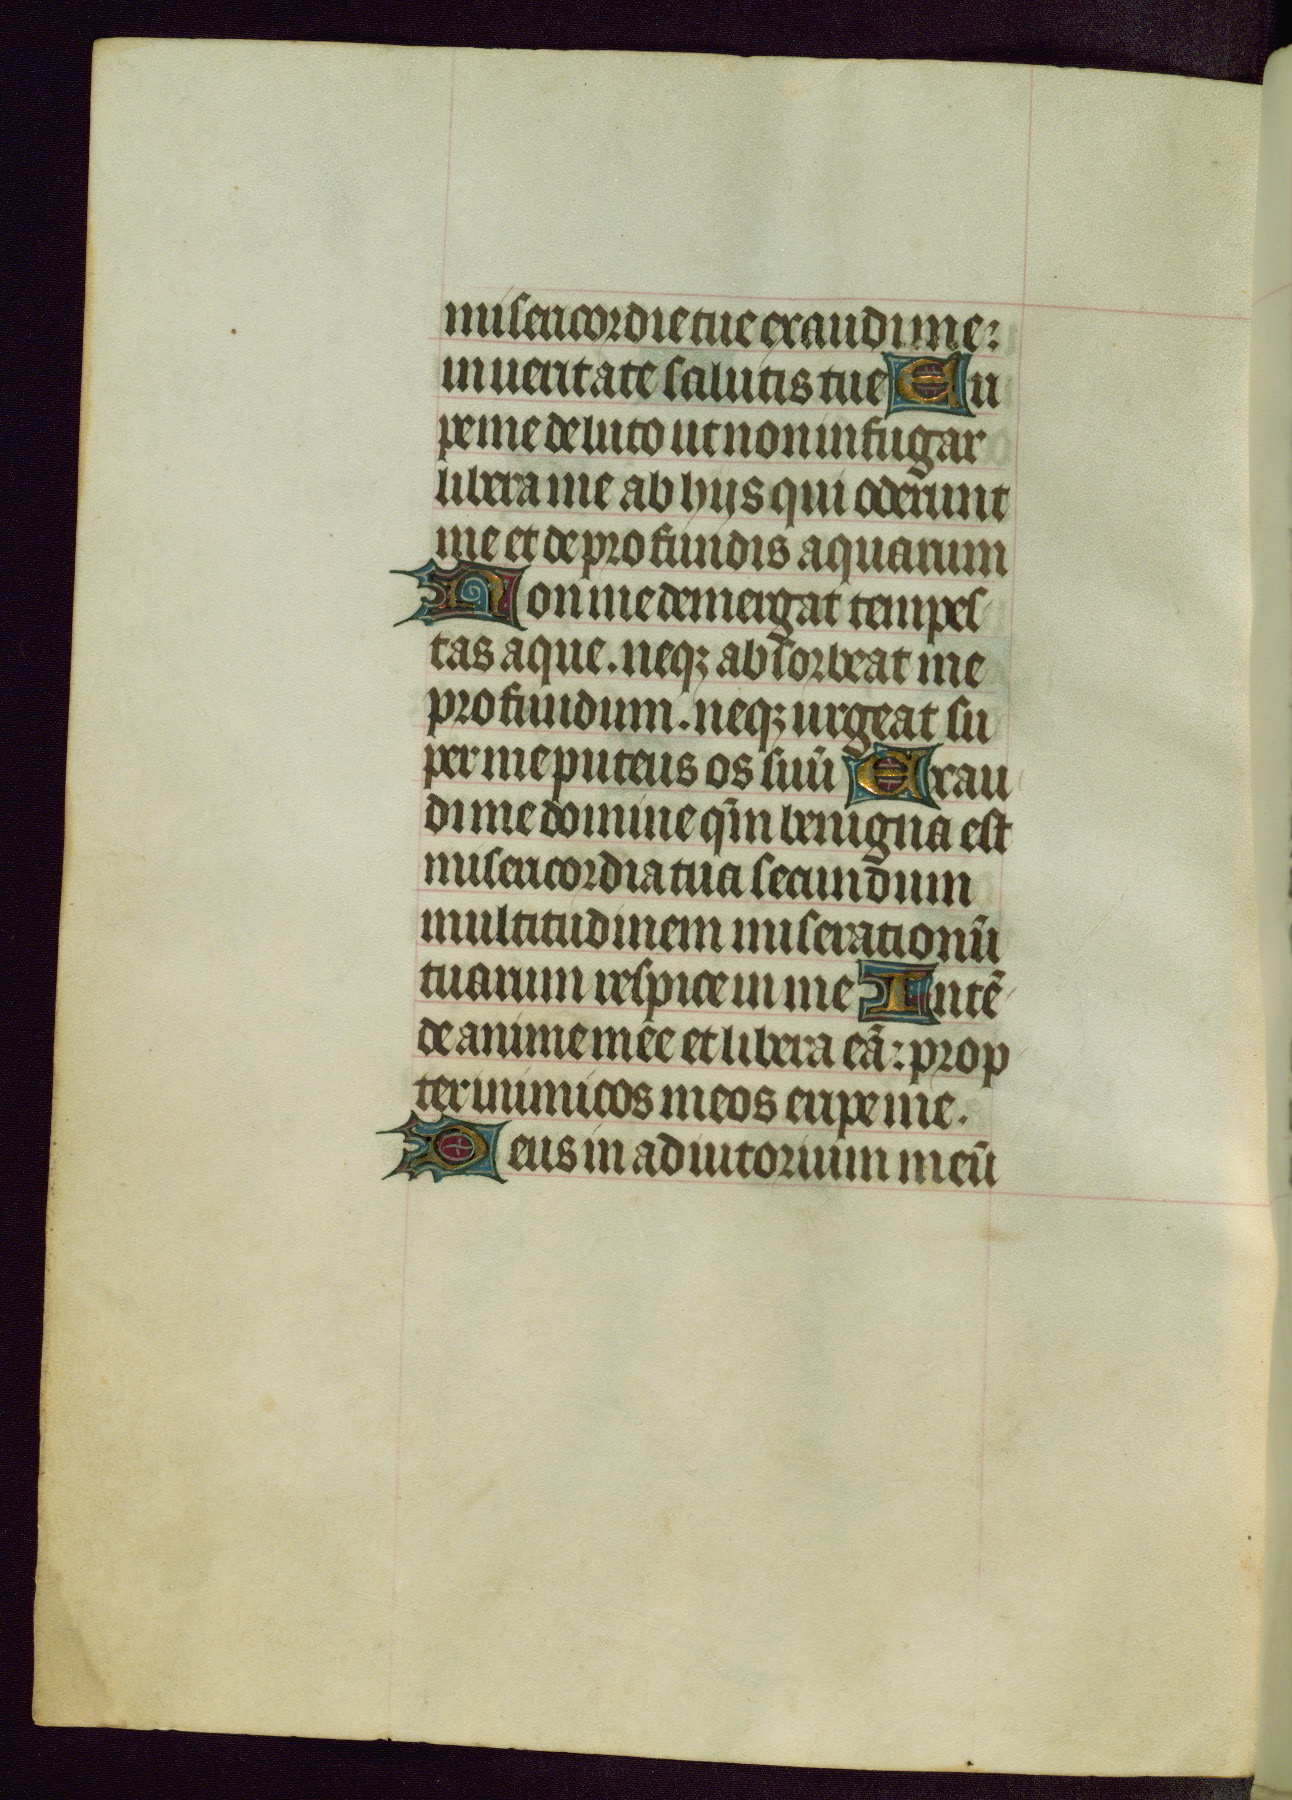 misericordie tue exaudi me:
in ueritate salutis tue Eri
pe me de luto ut non infigar
libera me ab hijs qui oderunt
me et de profundis aquarum
Non me demergat tempes
tas aque. neqꝫ absorbeat me
profundum. neqꝫ urgeat su
per me puteus os suū Exau
di me domine qm̄ benigna est
misericordia tua secundum
multitudinem miserationū
tuarum respice in me Intē
de anime mee et libera eā: prop
ter inimicos meos eripe me.
Deus in adiutorium meū